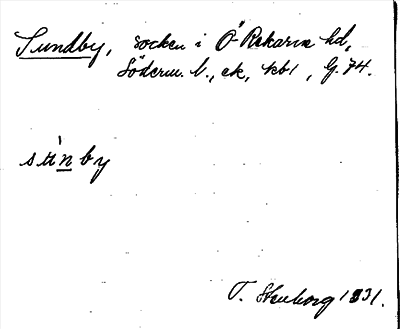 Sundby, socken i Ö Rekarne hd,
Söderm. l., ek, kbl, G. 74.
sún by
T. Stenborg 1931.